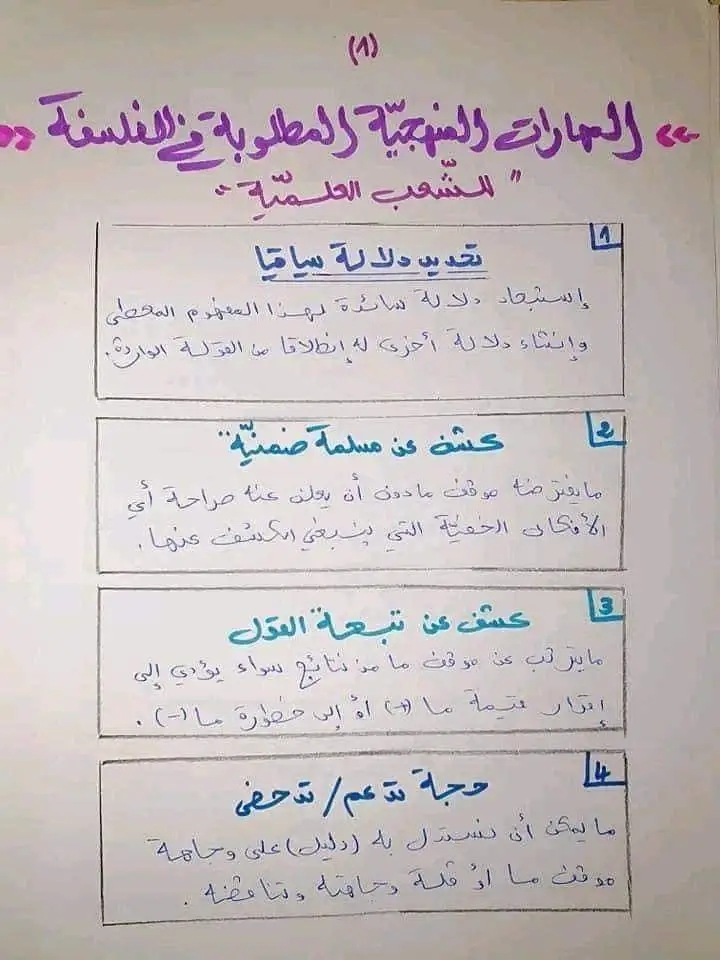 (1)
« المهارات المنهجيّة المطلوبة في الفلسفة »
"للشّعب العلميّة"
1
تحديد دلالة سياقيا
إستبعاد دلالة سائدة لهذا المفهوم المعطى
وإنشاء دلالة أخرى له إنطلاقا من القولة الواردة.
2
كشف عن مسلمة ضمنيّة
ما يفترضه موقف ما دون أن يعلن عنه صراحة أي
الأفكار الخفيّة التي ينبغي الكشف عنها.
3
كشف عن تبعة القول
ما يترتب عن موقف ما من نتائج سواء يؤدي إلى
إقرار قيمة ما (+) أو إلى خطورة ما (-).
4
حجة تدعم / تدحض
ما يمكن أن نستدل به (دليل) على وجاهة
موقف ما أو قلة وجاهته وتناقضه.